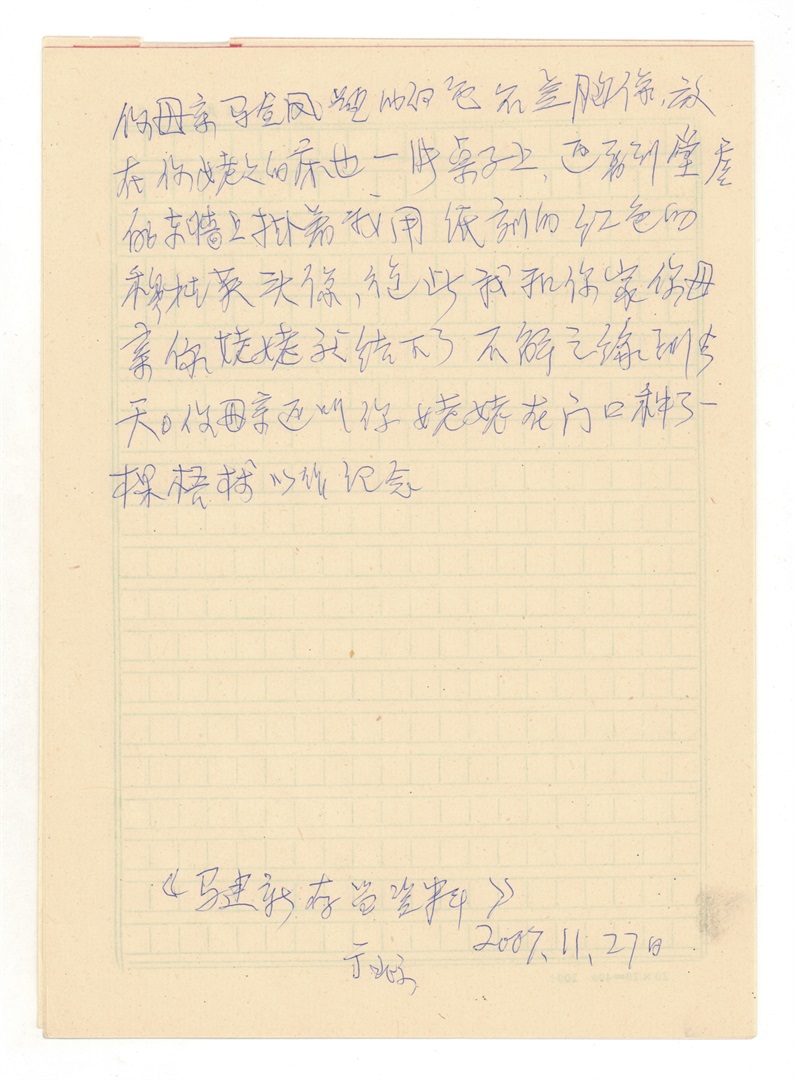 你母亲马金凤塑的白色石羔胸像,放
在你姥姥的床边一张桌子上,还看到堂屋
的东墙上挂着我用纸刻的红色的
穆桂英头像,从此我和你家你母
亲你姥姥就结下了不解之缘到今
天。你母亲还叫你姥姥在门口种了一
棵梧树以作纪念
《马建新存留资料》
2007.11.27日